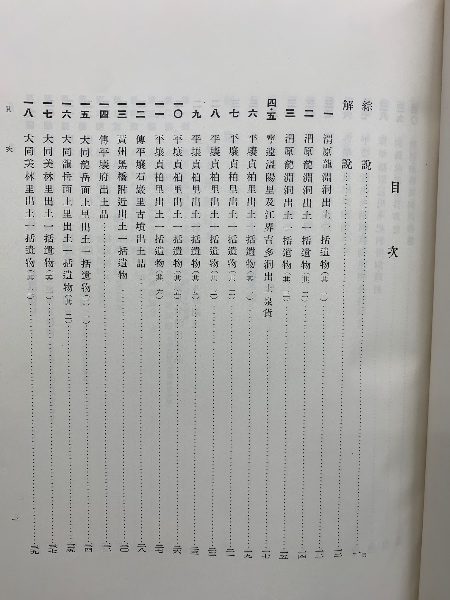 目次
綜說
解說
一 渭原龍淵洞出土一括遺物(其一)
二 渭原龍淵洞出土一括遺物(其二)
三 渭原龍淵洞出土一括遺物(其三)
四・五 寧邊溫陽里及江界吉多洞出土泉貨
六 平壤貞柏里出土一括遺物(其一)
七 平壤貞柏里出土一括遺物(其二)
八 平壤貞柏里出土一括遺物(其三)
九 平壤貞柏里出土一括遺物(其四)
一〇 平壤貞柏里出土一括遺物(其五)
一一 平壤貞柏里出土一括遺物(其六)
一二 傳平壤石巖里古墳出土品
一三 黃州黑橋附近出土一括遺物
一四 傳平壤府出土品
一五 大同龍岳面上里出土一括遺物(其一)
一六 大同龍岳面上里出土一括遺物(其二)
一七 大同美林里出土一括遺物(其一)
一八 大同美林里出土一括遺物(其二)
目次